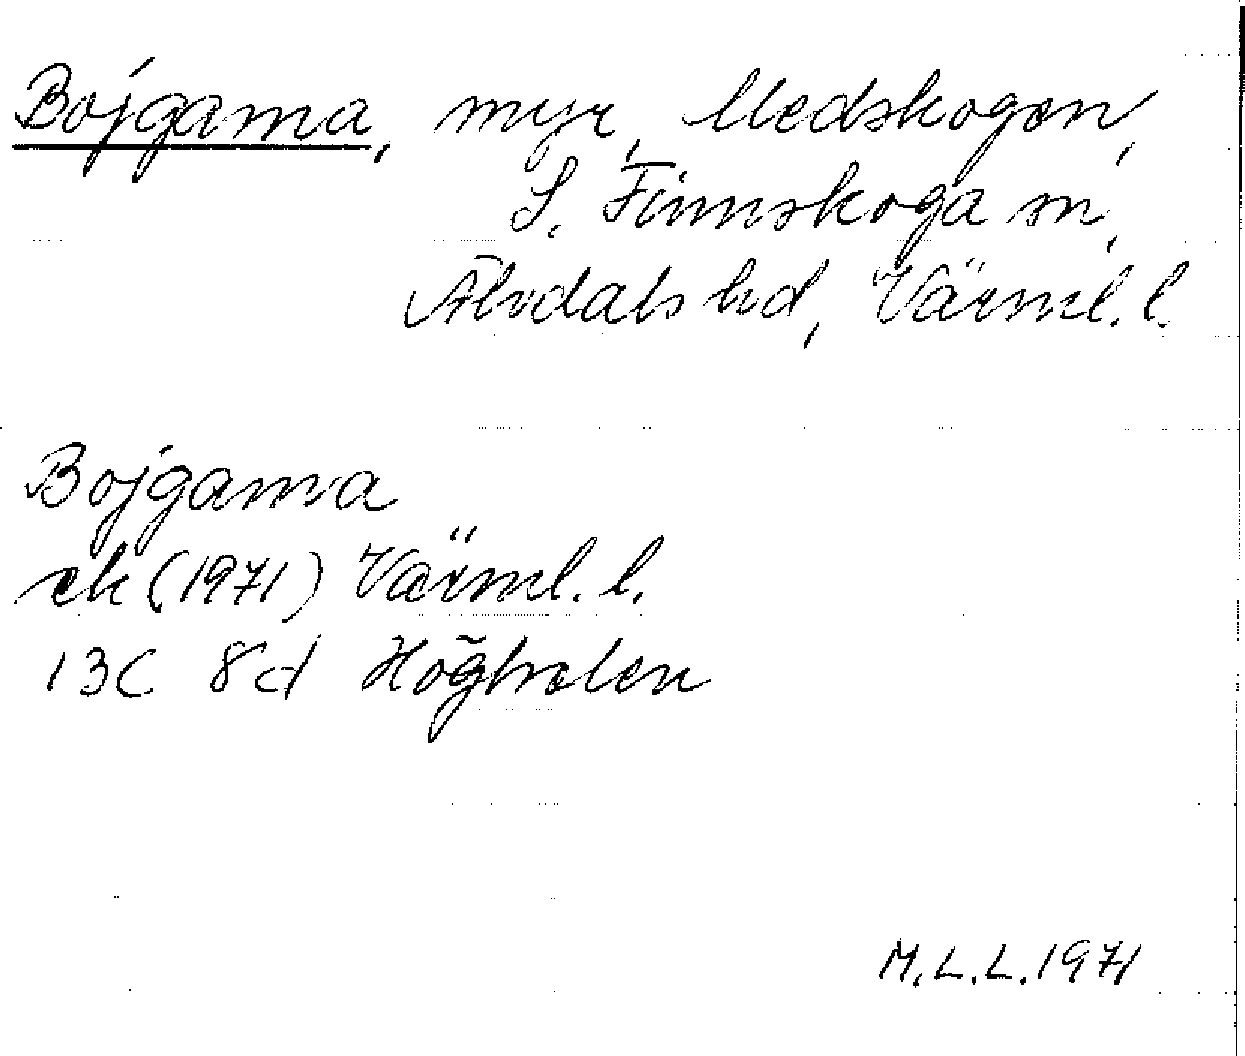 Bojgama, myr, Medskogen,
S. Finnskoga sn,
Älvdals hd, Värml. l.
Bojgama
ek (1971) Värml. l.
13C 8d Höljes
M.L.L. 1971